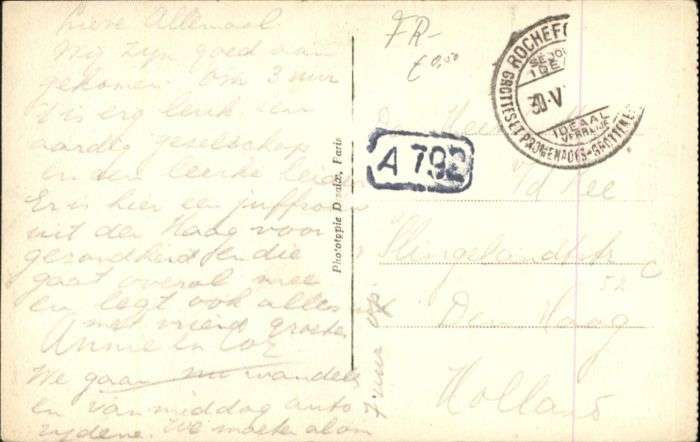 Lieve Allemaal
Wij zijn goed aan
gekomen om 3 uur
't is erg leuk een
aardig geselschap
en den eerste leider
Er is hier een juffrouw
uit den Haag voor
gezondheid en die
gaat overal mee
en legt ook alles uit
met vriend groeten
Annie en Cor
We gaan nu wandelen
en van middag auto
rydene. We moeten al om
7 uur op
Phototypie Desaix, Paris
FR-
€ 0,50
A 792
ROCHEFO
SEJOU
IDEA
30 V
IDEAAL
VERBLIJF
GROTTES ET PROMENADES-GROTTEN E
Den Heer
v/d Kee
Slingelandtstr
52 C
Den Haag
Holland